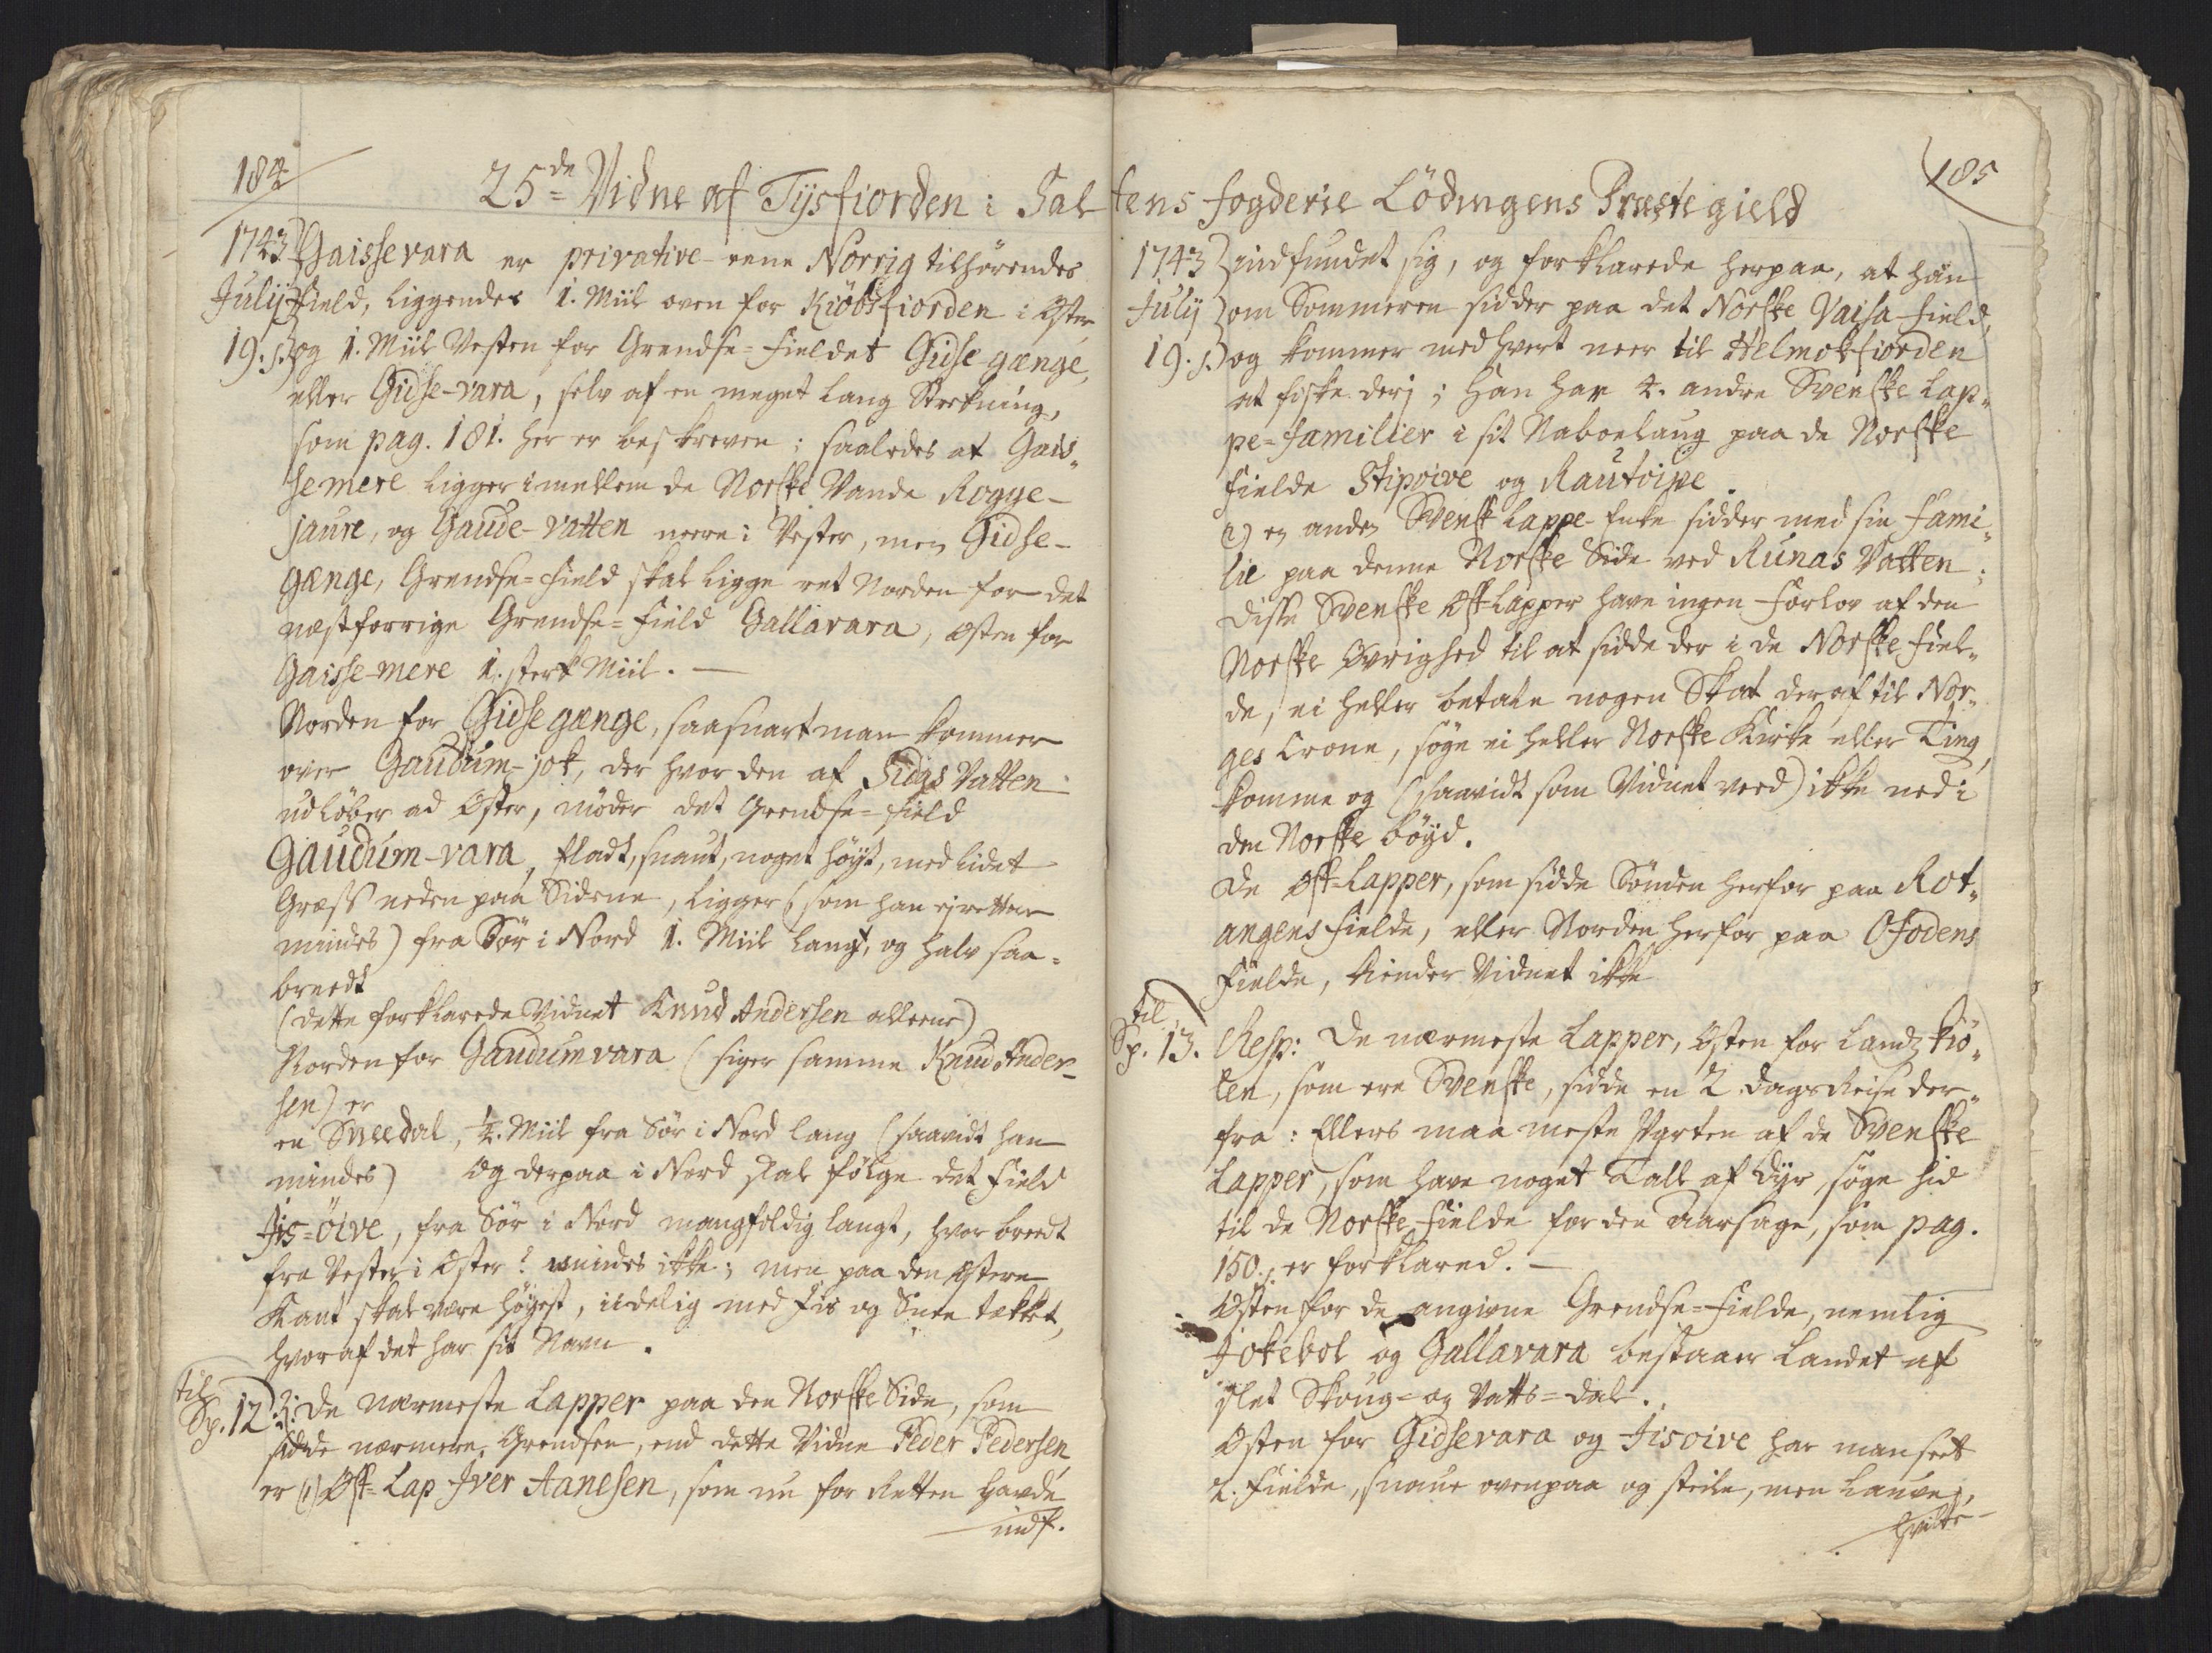 184
25de Vidne af Tysfiorden i Sal
1743 Gaissevara er privative eene Norrig tilhørendes
Julij Field, liggendes 1. Miil oven for Kiöbsfiorden i Öster
19. s. og 1. Miil Vesten for Grendse-Fieldet Gidse gænge,
eller Gidse-vara, selv af en meget lang Strekning,
som pag. 181. her er beskreven; saaledes at Gais„
semere ligger imellem de Norske Vande Rogge-
jaure, og Gaude-vatten neere i Vester, men Gidse-
gænge, Grendse-Field skal ligge ret Norden for det
næstforrige Grendse-Field Gallavara, Østen for
Gaisse-mere 1. sterk Miil. —
Norden for Gidse gænge, saasnart man kommer
over Gaudum-jok, der hvor den af Sidas Vatten
udløber ad Øster, møder det Grendse-Field
Gaudum-vara, fladt, snaut, noget høyt, med lidet
Græss neden paa Siderne, ligger (som han ej rettere
mindes) fra Sør i Nord 1. Miil langt, og halv saa-
breedt
(dette forklarede Vidnet Knud Andersen alleene)
Norden for Gaudumvara (siger samme Knud Ander-
sen) er
en Sneedal, ½. Miil fra Sør i Nord lang (saavidt han
mindes) Og derpaa i Nord skal følge det Field
Jis-öive, fra Sør i Nord mangfoldig langt, hvor breedt
fra Vester i Øster? mindes ikke; men paa den Østere
Kant skal være høyest, iidelig med Iis og Snee tækket,
hvoraf det har sit Navn.
til
Sp. 12. R: De nærmeste Lapper paa den Norske Side, som
sidde nærmere Grendsen, end dette Vidne Peder Pedersen
er (1) Øst-Lap Iver Aanesen, som nu for Retten havde
indf.
185
tens fogderie Lödingens Præstegield
1743 indfundet sig, og forklarede herpaa, at han
Julij om Sommeren sidder paa det Norske Vaisa-Field,
19. s. og kommer med hvert neer til Helmokfiorden
at fiske deri; Han har 4. andre Svenske Lap„
pe-familier i sit Naboelaug paa de Norske
Fielde Stipoive og Rautoive.
(2) en anden Svensk Lappe-Enke sidder med sin Fami„
lie paa denne Norske Side ved Runas Vatten;
Disse Svenske Øst-Lapper have ingen Forlov af den
Norske Øvrighed til at sidde der i de Norske Fiel„
de, ei heller betale nogen Skat deraf til Nor„
ges Crone, søge ei heller Norske Kirke eller Ting,
komme og (saavidt som Vidnet veed) ikke ned i
den Norske böyd.
De Øst-Lapper, som sidde Sønden herfor paa Rot„
angens Fielde, eller Norden herfor paa Ofodens
Fielde, kiender Vidnet ikke
til
Sp. 13. Resp: De nærmeste Lapper, Østen for Landz Kiö„
len, som ere Svenske, sidde en 2 dags Reise der„
fra: Ellers maa meste Parten af de Svenske
Lapper, som have noget Tall af Dyr, søge hid
til de Norske Fielde for den Aarsage, som pag.
150. s. er forklaret. —
Østen for de angivne Grendse-Fielde, nemlig
Jokebok og Gallavara bestaaer Landet af
slet Skoug- og Vatts-dal.
Østen for Gidsevara og Jisoive har man seet
2. Fielde, snaue ovenpaa og steile, men
hvilke